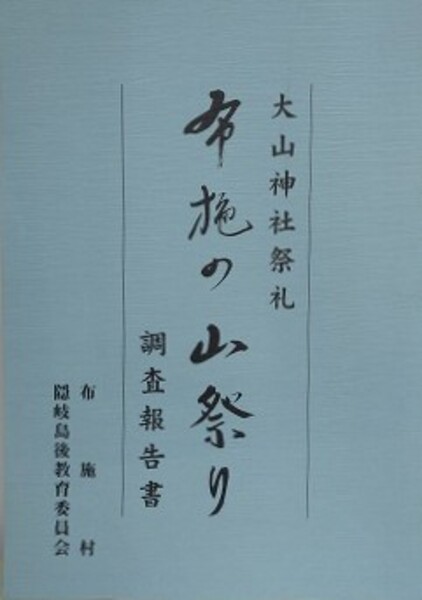 大山神社祭礼
布施の山祭り
調査報告書
布施村
隠岐島後教育委員会